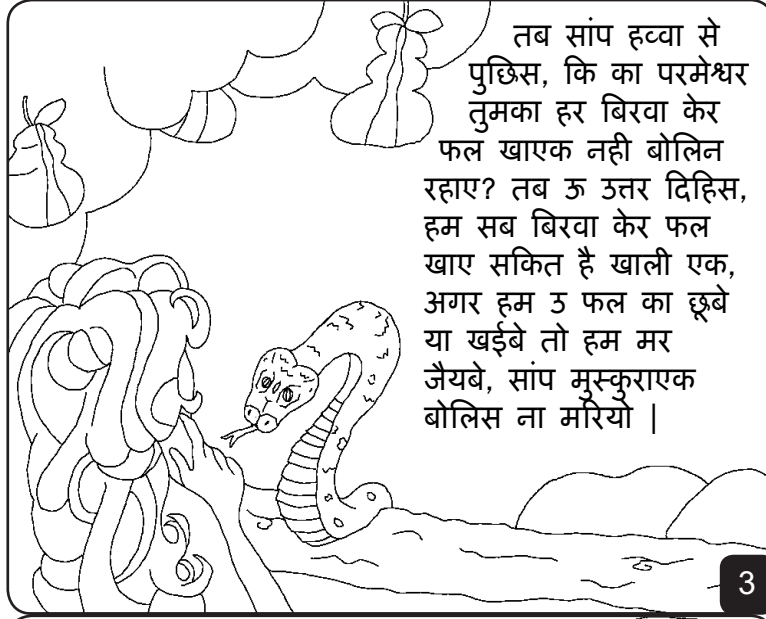 तब सांप हव्वा से
पुछिस, कि का परमेश्वर
तुमका हर बिरवा केर
फल खाएक नही बोलिन
रहाए? तब ऊ उत्तर दिहिस,
हम सब बिरवा केर फल
खाए सकित है खाली एक,
अगर हम उ फल का छूबे
या खईबे तो हम मर
जैयबे, सांप मुस्कुराएक
बोलिस ना मरियो |
3